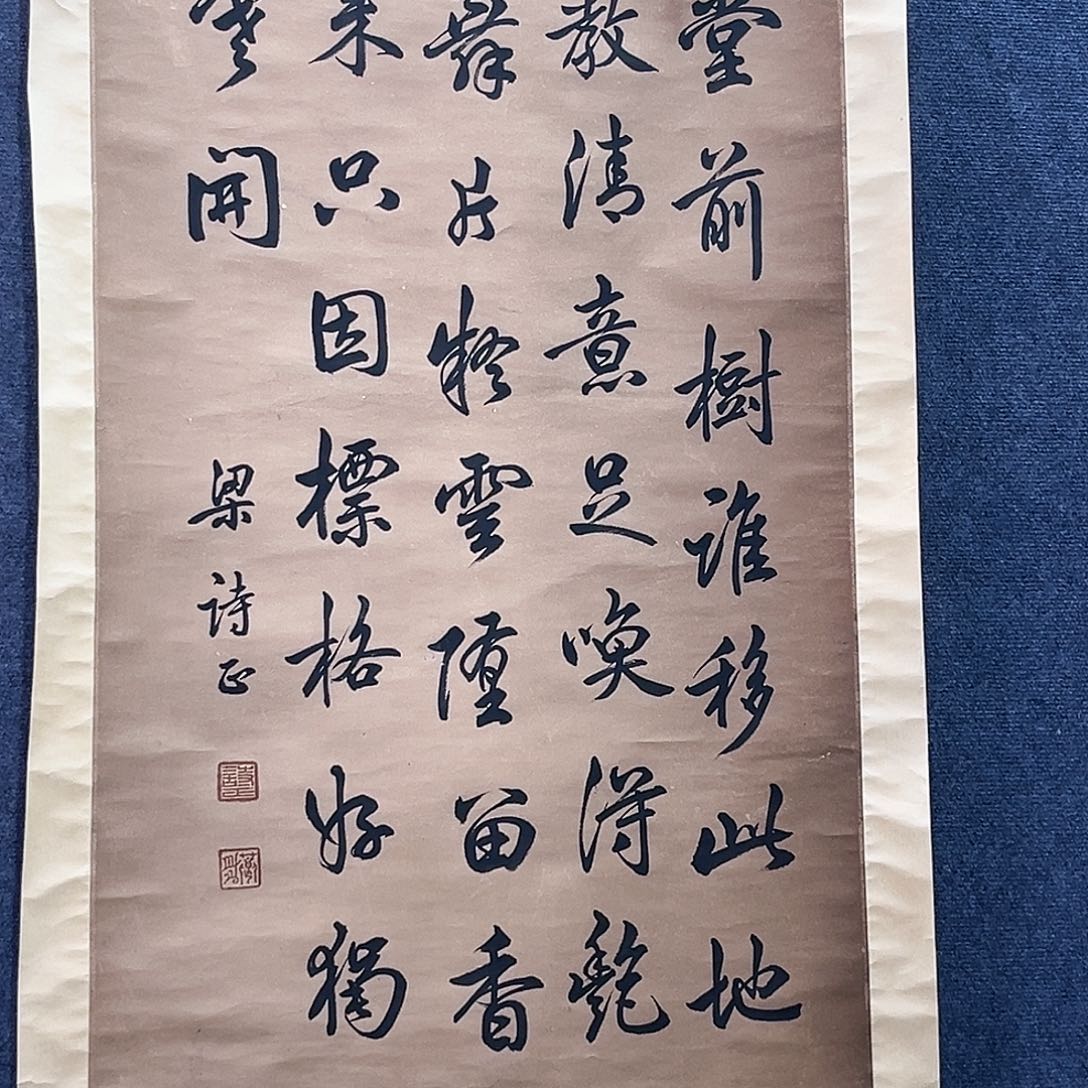 堂前樹誰移此地
教清意足喚得艷
舞片凝雲墮留香
只因標格好獨
開
梁詩正